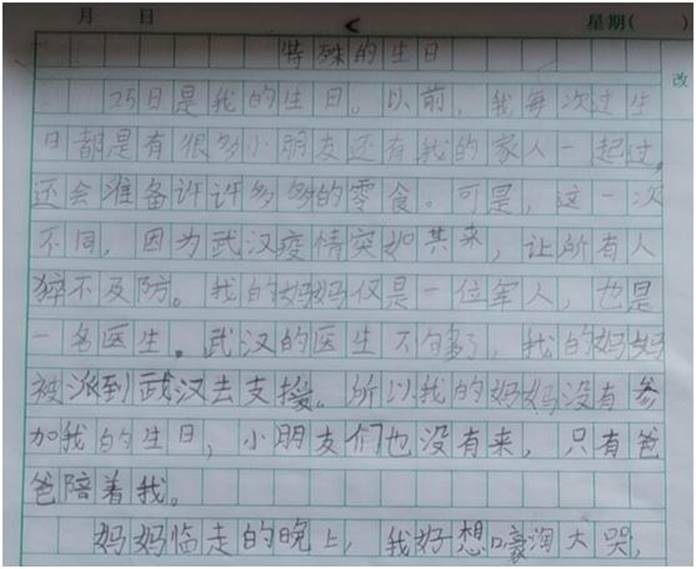 月 日 星期( )
改
特殊的生日
25日是我的生日。以前,我每次过生
日都是有很多小朋友还有我的家人一起过,
还会准备许许多多的零食。可是,这一次
不同,因为武汉疫情突如其来,让所有人
猝不及防。我的妈妈仅是一位军人,也是
一名医生。武汉的医生不够了,我的妈妈
被派到武汉去支援。所以我的妈妈没有参
加我的生日,小朋友们也没有来,只有爸
爸陪着我。
妈妈临走的晚上,我好想嚎淘大哭,